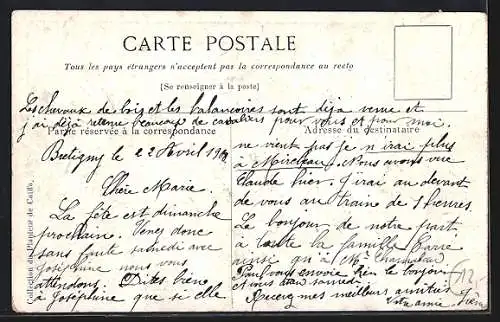 CARTE POSTALE
Tous les pays étrangers n'acceptent pas la correspondance au recto
(Se renseigner à la poste)
Les chevaux de bois et les balançoires sont déjà venu et
j'ai déjà retenu beaucoup de cavaliers pour vous et pour moi
Partie réservée à la correspondance
Adresse du destinataire
Bretigny le 22 Avril 19
Chère Marie.
La fête est dimanche
prochain. Venez donc
sans faute samedi avec
Joséphine nous vous
attendons. Dites bien
à Joséphine que si elle
ne vient pas je n'irai plus
à Mirebeau. Nous avons vue
Claude hier. J'irai au devant
de vous au train de 5 heures.
Le bonjour de notre part
à toute la famille
ainsi qu'à Me
vous envoie bien le bonjour
à samedi.
Recevez mes meilleurs amitiés
Votre amie
Collection du Planteur de Caïffa